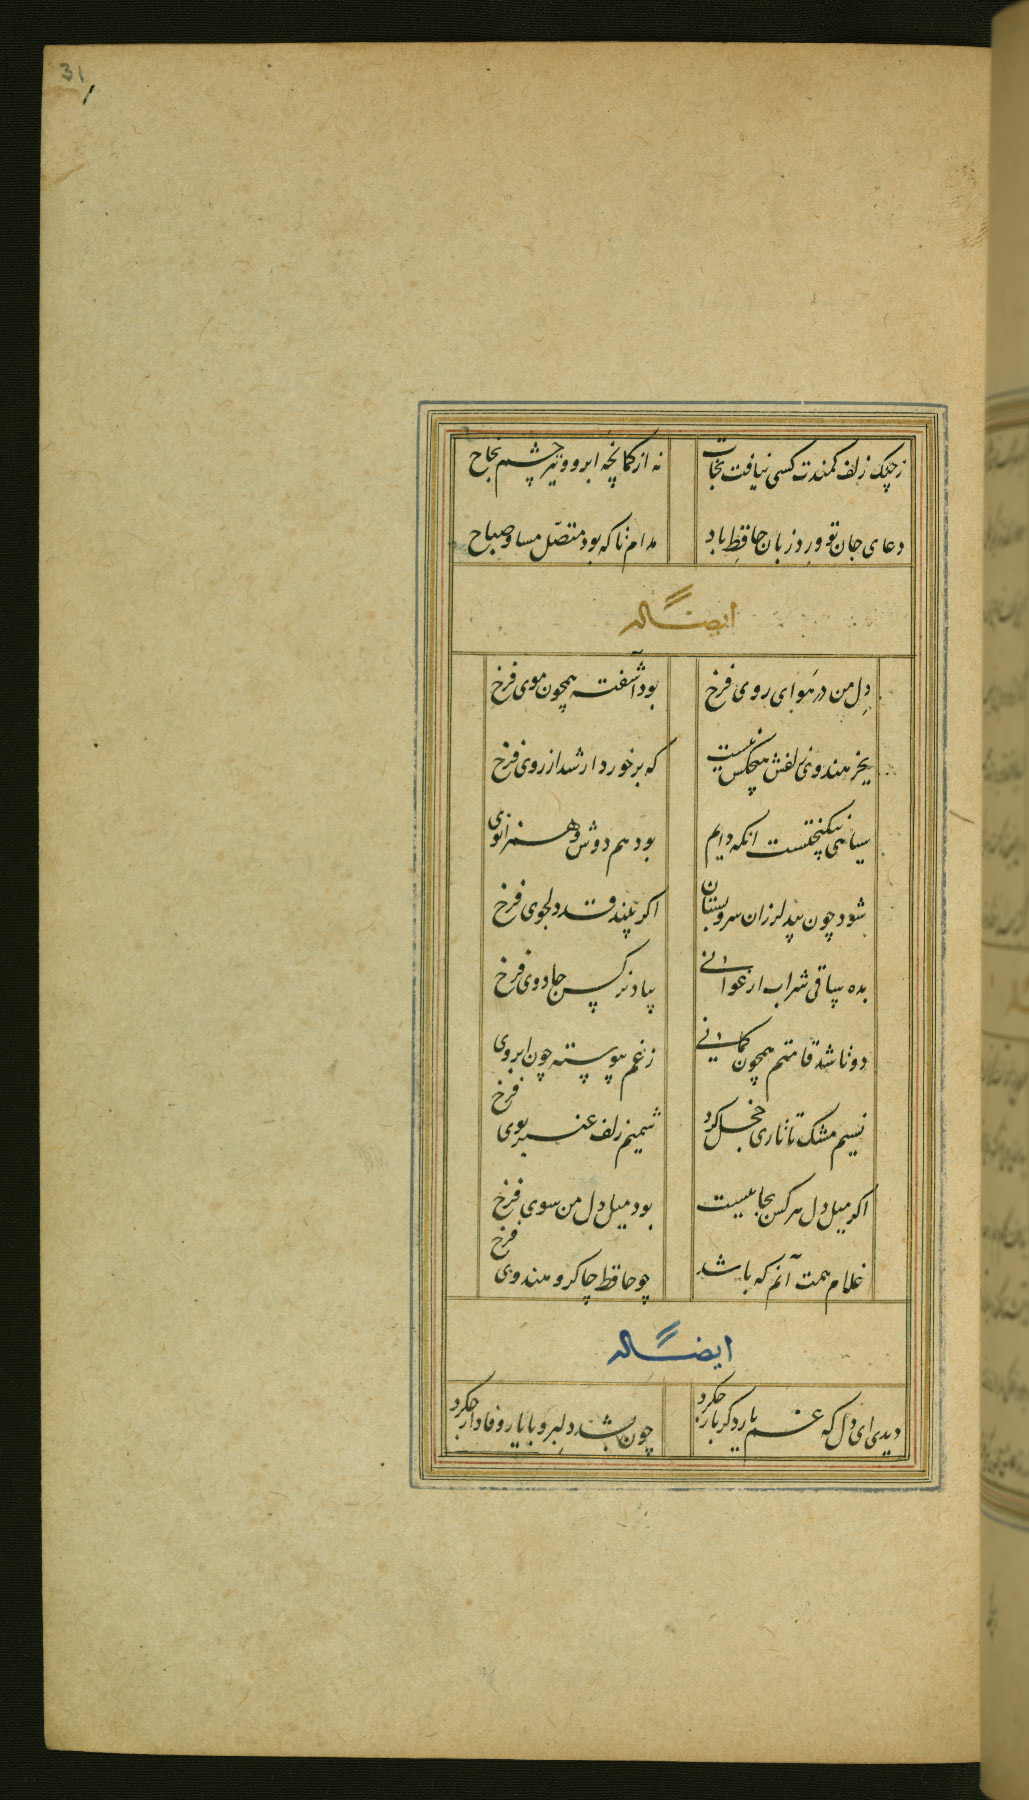 31
ز چنگ زلف کمندت کسی نیافت نجات نه از کمانچه ابرو و تیر چشم نجاح
دعای جان تو ورد زبان حافظ باد مدام تا که بود متصّل مسا و صباح
ایضاً له
دل من در هوای روی فرخ بود آشفته همچون موی فرخ
بجز هندوی زلفش هیچکس نیست که برخوردار شد از روی فرخ
سیاهی نیکبختست انکه دایم بود هم دوش و هم زانوی
شود چون بید لرزان سرو بستان اکر بیند قد دلجوی فرخ
بده ساقی شراب ارغوانی بیاد نرکس جادوی فرخ
دوتا شد قامتم همچون کمانی ز غم پیوسته چون ابروی فرخ
نسیم مشک تاتاری خجل کرد شمیم زلف عنبر بوی
اکر میل دل هر کس بجاییست بود میل دل من سوی فرخ
غلام همت آنم که باشد چو حافظ چاکر و هندوی فرخ
ایضاً له
دیدی ای دل که غم یار دکر بار چکرد چون بشد دلبر و با یار وفادار چکرد